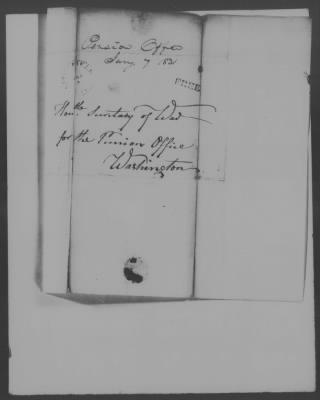 Pension Office
Jany 7 183
Honble Secretary of War
for the Pension Office
Washington